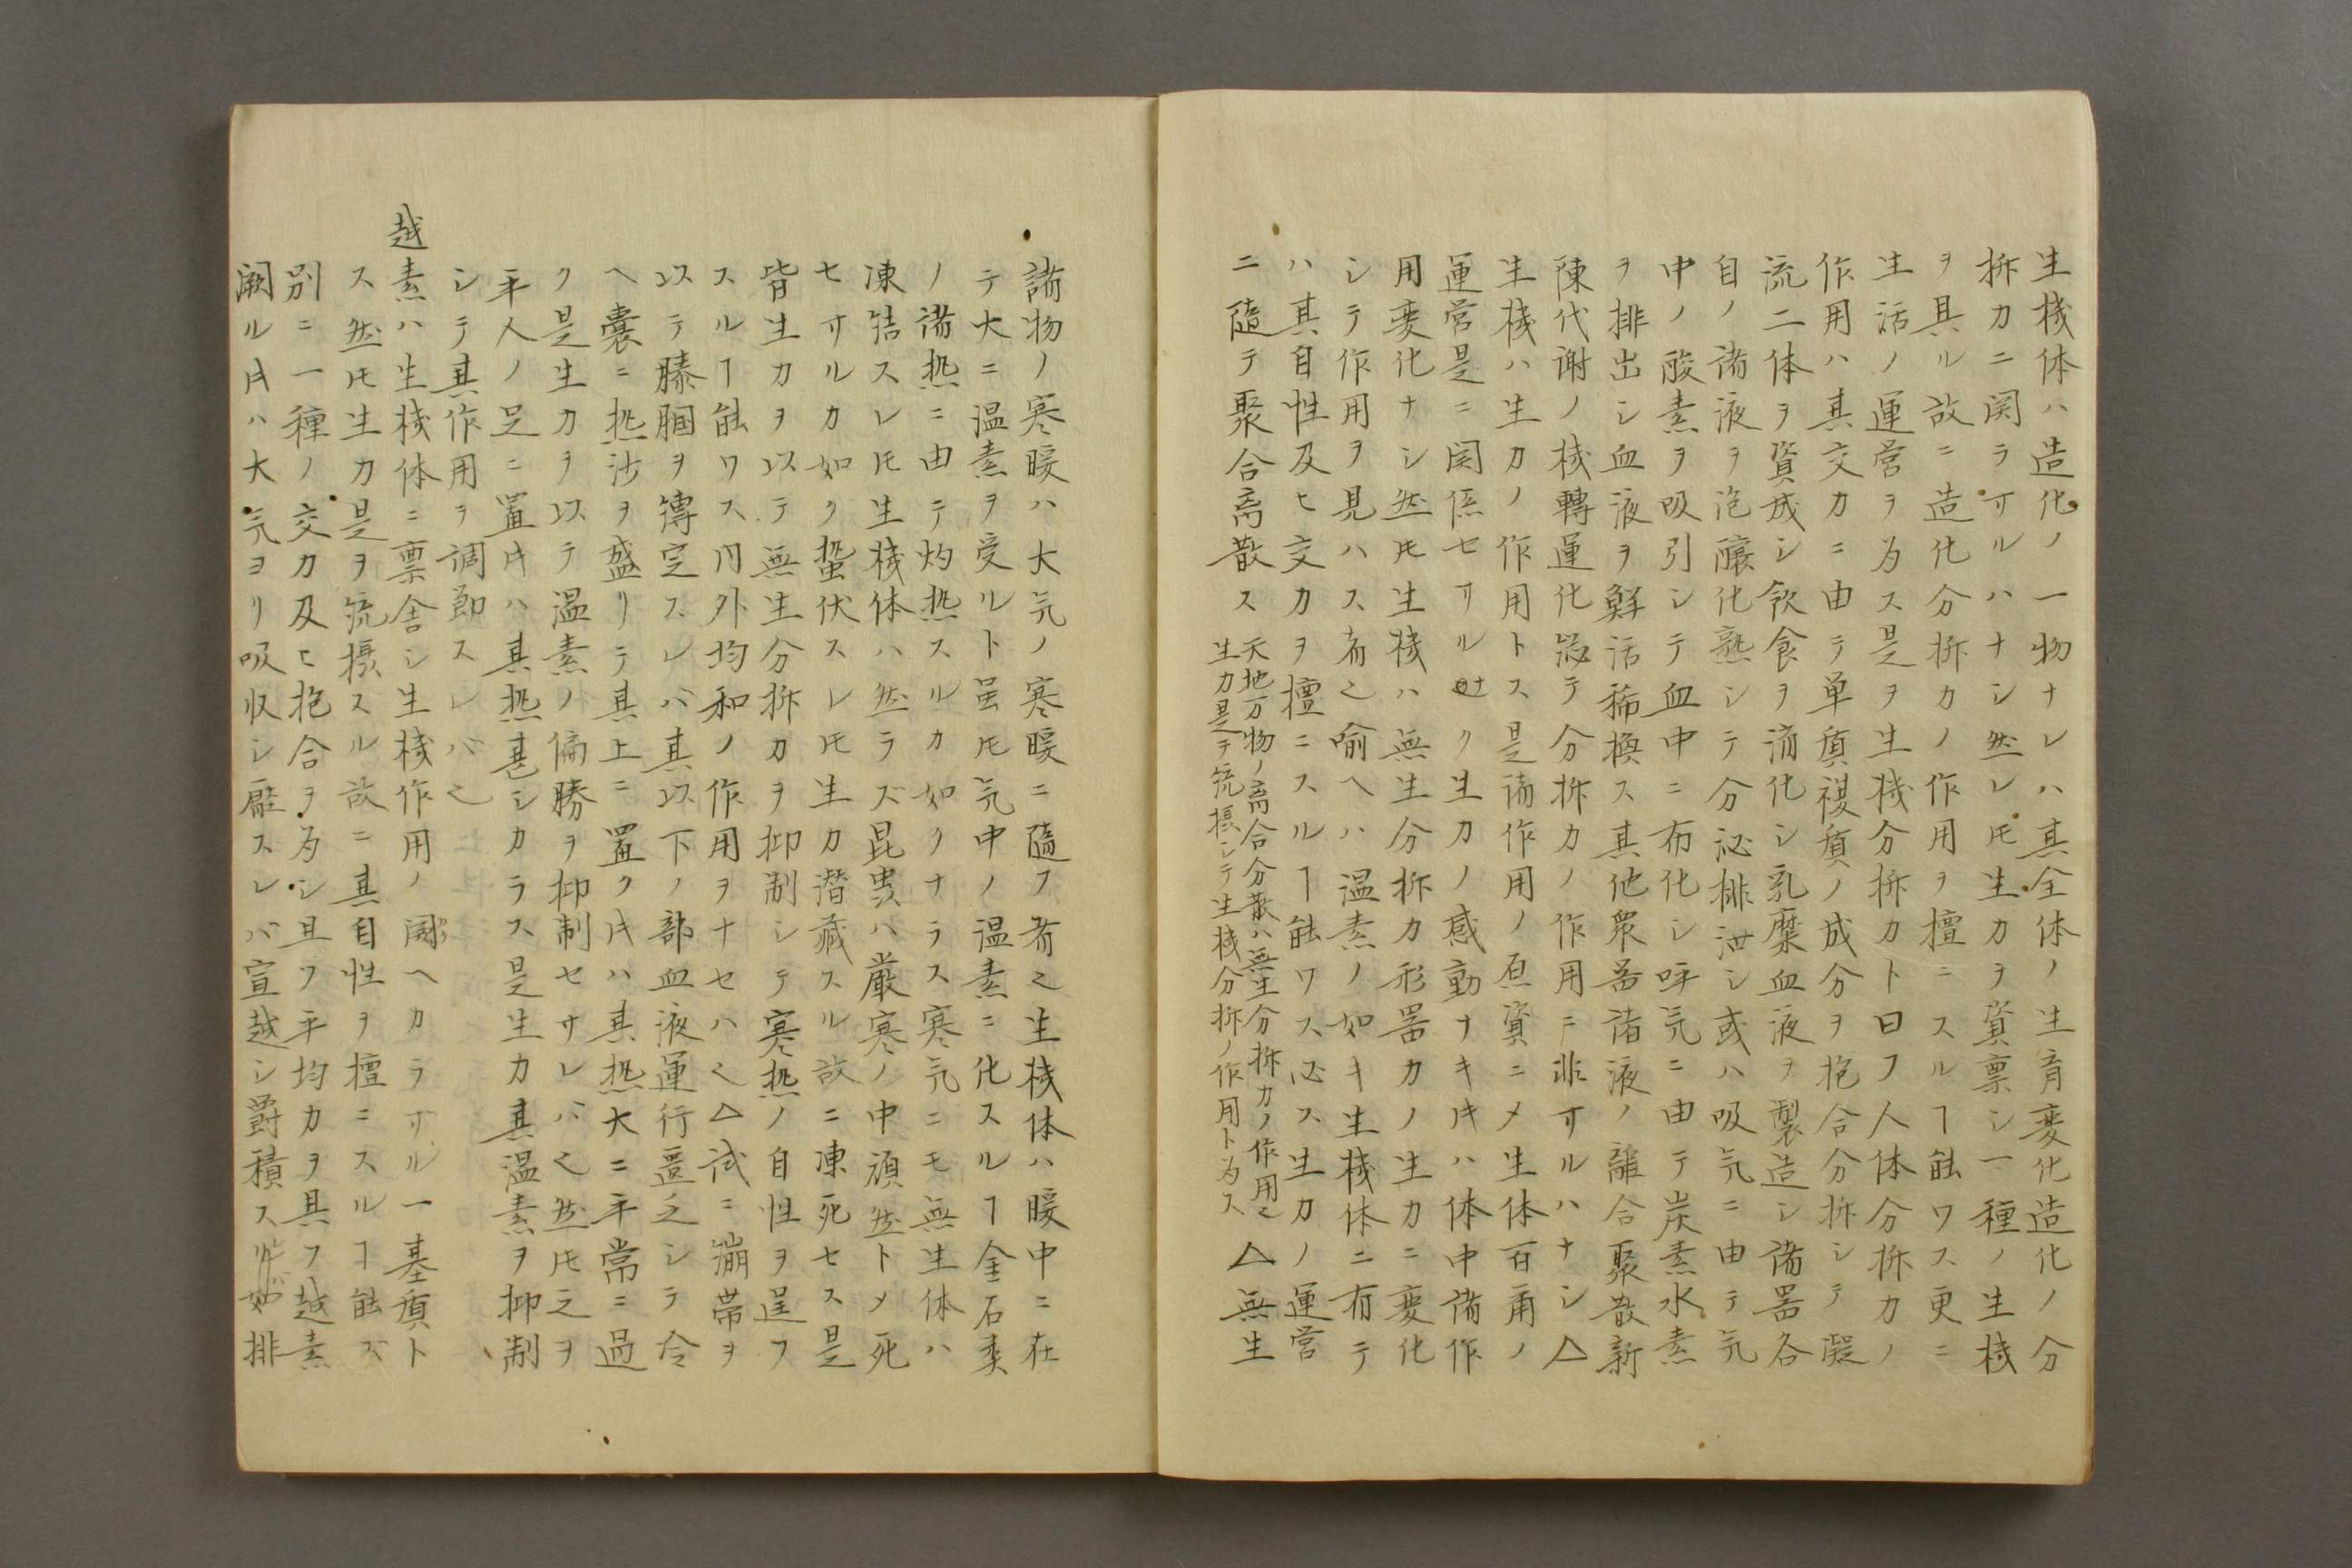 生機体ハ造化ノ一物ナレハ其全体ノ生育変化造化ノ分
拆力ニ関ラサルハナシ然レ𪜈生力ヲ資稟シ一種ノ生機
ヲ具ル故ニ造化分拆力ノ作用ヲ擅ニスルヿ能ワス更ニ
生活ノ運営ヲ为ス是ヲ生機分拆力ト曰フ人体分拆力ノ
作用ハ其交力ニ由テ単質複質ノ成分ヲ抱合分拆シテ凝
流二体ヲ資成シ飲食ヲ消化シ乳糜血液ヲ製造シ諸器各
自ノ諸液ヲ泡醸化熟シテ分泌排泄シ或ハ吸気ニ由テ気
中ノ酸素ヲ吸引シテ血中ニ布化シ呼気ニ由テ炭素水素
ヲ排出シ血液ヲ鮮活稀換ス其他衆器諸液ノ離合聚散新
陳代謝ノ機轉運化総テ分拆力ノ作用ニ非サルハナシ△
生機ハ生力ノ作用トス是諸作用ノ原資ニメ生体百用ノ
運営是ニ関係セサルク生力ノ感動ナキ片ハ体中諸作
用変化ナシ然𪜈生機ハ無生分拆力形器力ノ生力ニ変化
シテ作用ヲ見ハス者之喩ヘハ温素ノ如キ生機体ニ有テ
ハ其自性及ヒ交力ヲ擅ニスルヿ能ワス必ス生力ノ運営
ニ随テ聚合离散ス
天地万物ノ离合分散ハ無生分拆力ノ作用之
生力是ヲ統摂シテ生機分拆ノ作用ト为ス
△無生
諸物ノ寒暖ハ大気ノ寒暖ニ随フ者之生機体ハ暖中ニ在
テ大ニ温素ヲ受ルト虽𪜈気中ノ温素ニ化スルヿ金石類
ノ諸热ニ由テ灼热スルカ如クナラス寒気ニモ無生体ハ
凍结スレ𪜈生機体ハ然ラズ昆虫ハ厳寒ノ中頑然トメ死
セサルカ如ク蟄伏スレ𪜈生力潜蔵スル故ニ凍死セス是
皆生力ヲ以テ無生分拆力ヲ抑制シテ寒热ノ自性ヲ逞フ
スルヿ能ワス内外均和ノ作用ヲナセハ之△试ニ繃帯ヲ
以テ膝膕ヲ縛定スレバ其以下ノ部血液運行匱乏シテ冷
ヘ囊ニ热沙ヲ盛リテ其上ニ置ク片ハ其热大ニ平常ニ過
ク是生力ヲ以テ温素ノ偏勝ヲ抑制セサレバ之然𪜈之ヲ
平人ノ足ニ置片ハ其热甚シカラス是生力其温素ヲ抑制
シテ其作用ヲ调節スレバ之
越素ハ生機体ニ稟舎シ生機作用ノ闕ヘカラサル一基質ト
ス然𪜈生力是ヲ統摂スル故ニ其自性ヲ擅ニスルヿ能ズ
別ニ一種ノ交力及ヒ抱合ヲ为シ且ツ平均力ヲ具フ越素
闕ル片ハ大気ヨリ吸収シ壓スレバ宣越シ爵積ス如排